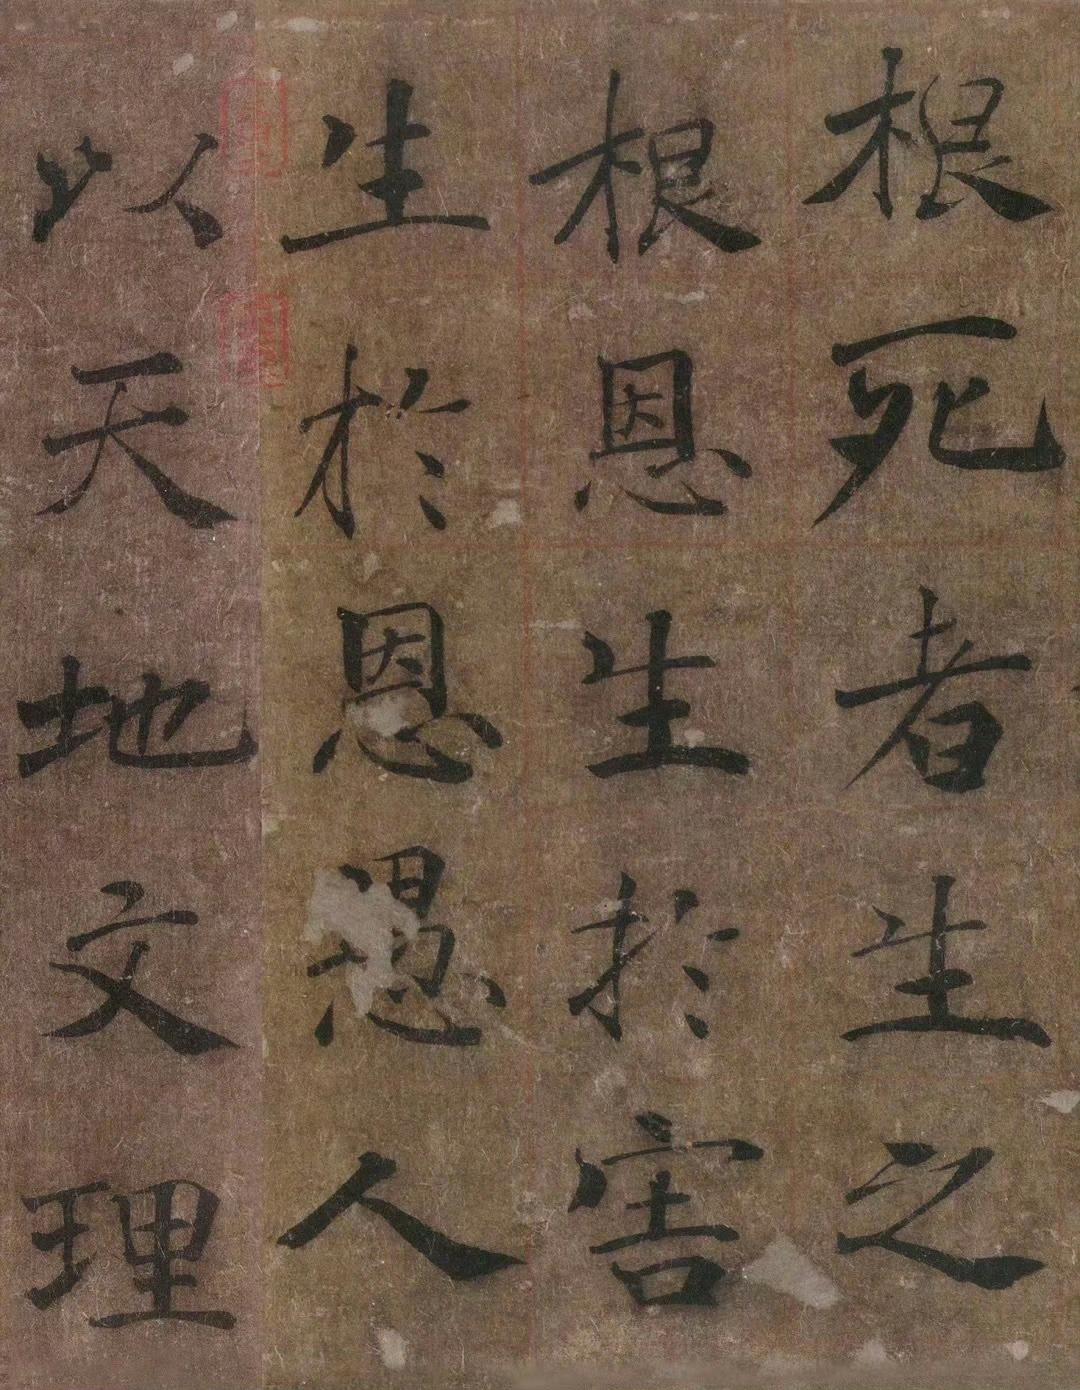 根死者生之
根恩生於害
生於恩愚人
以天地文理